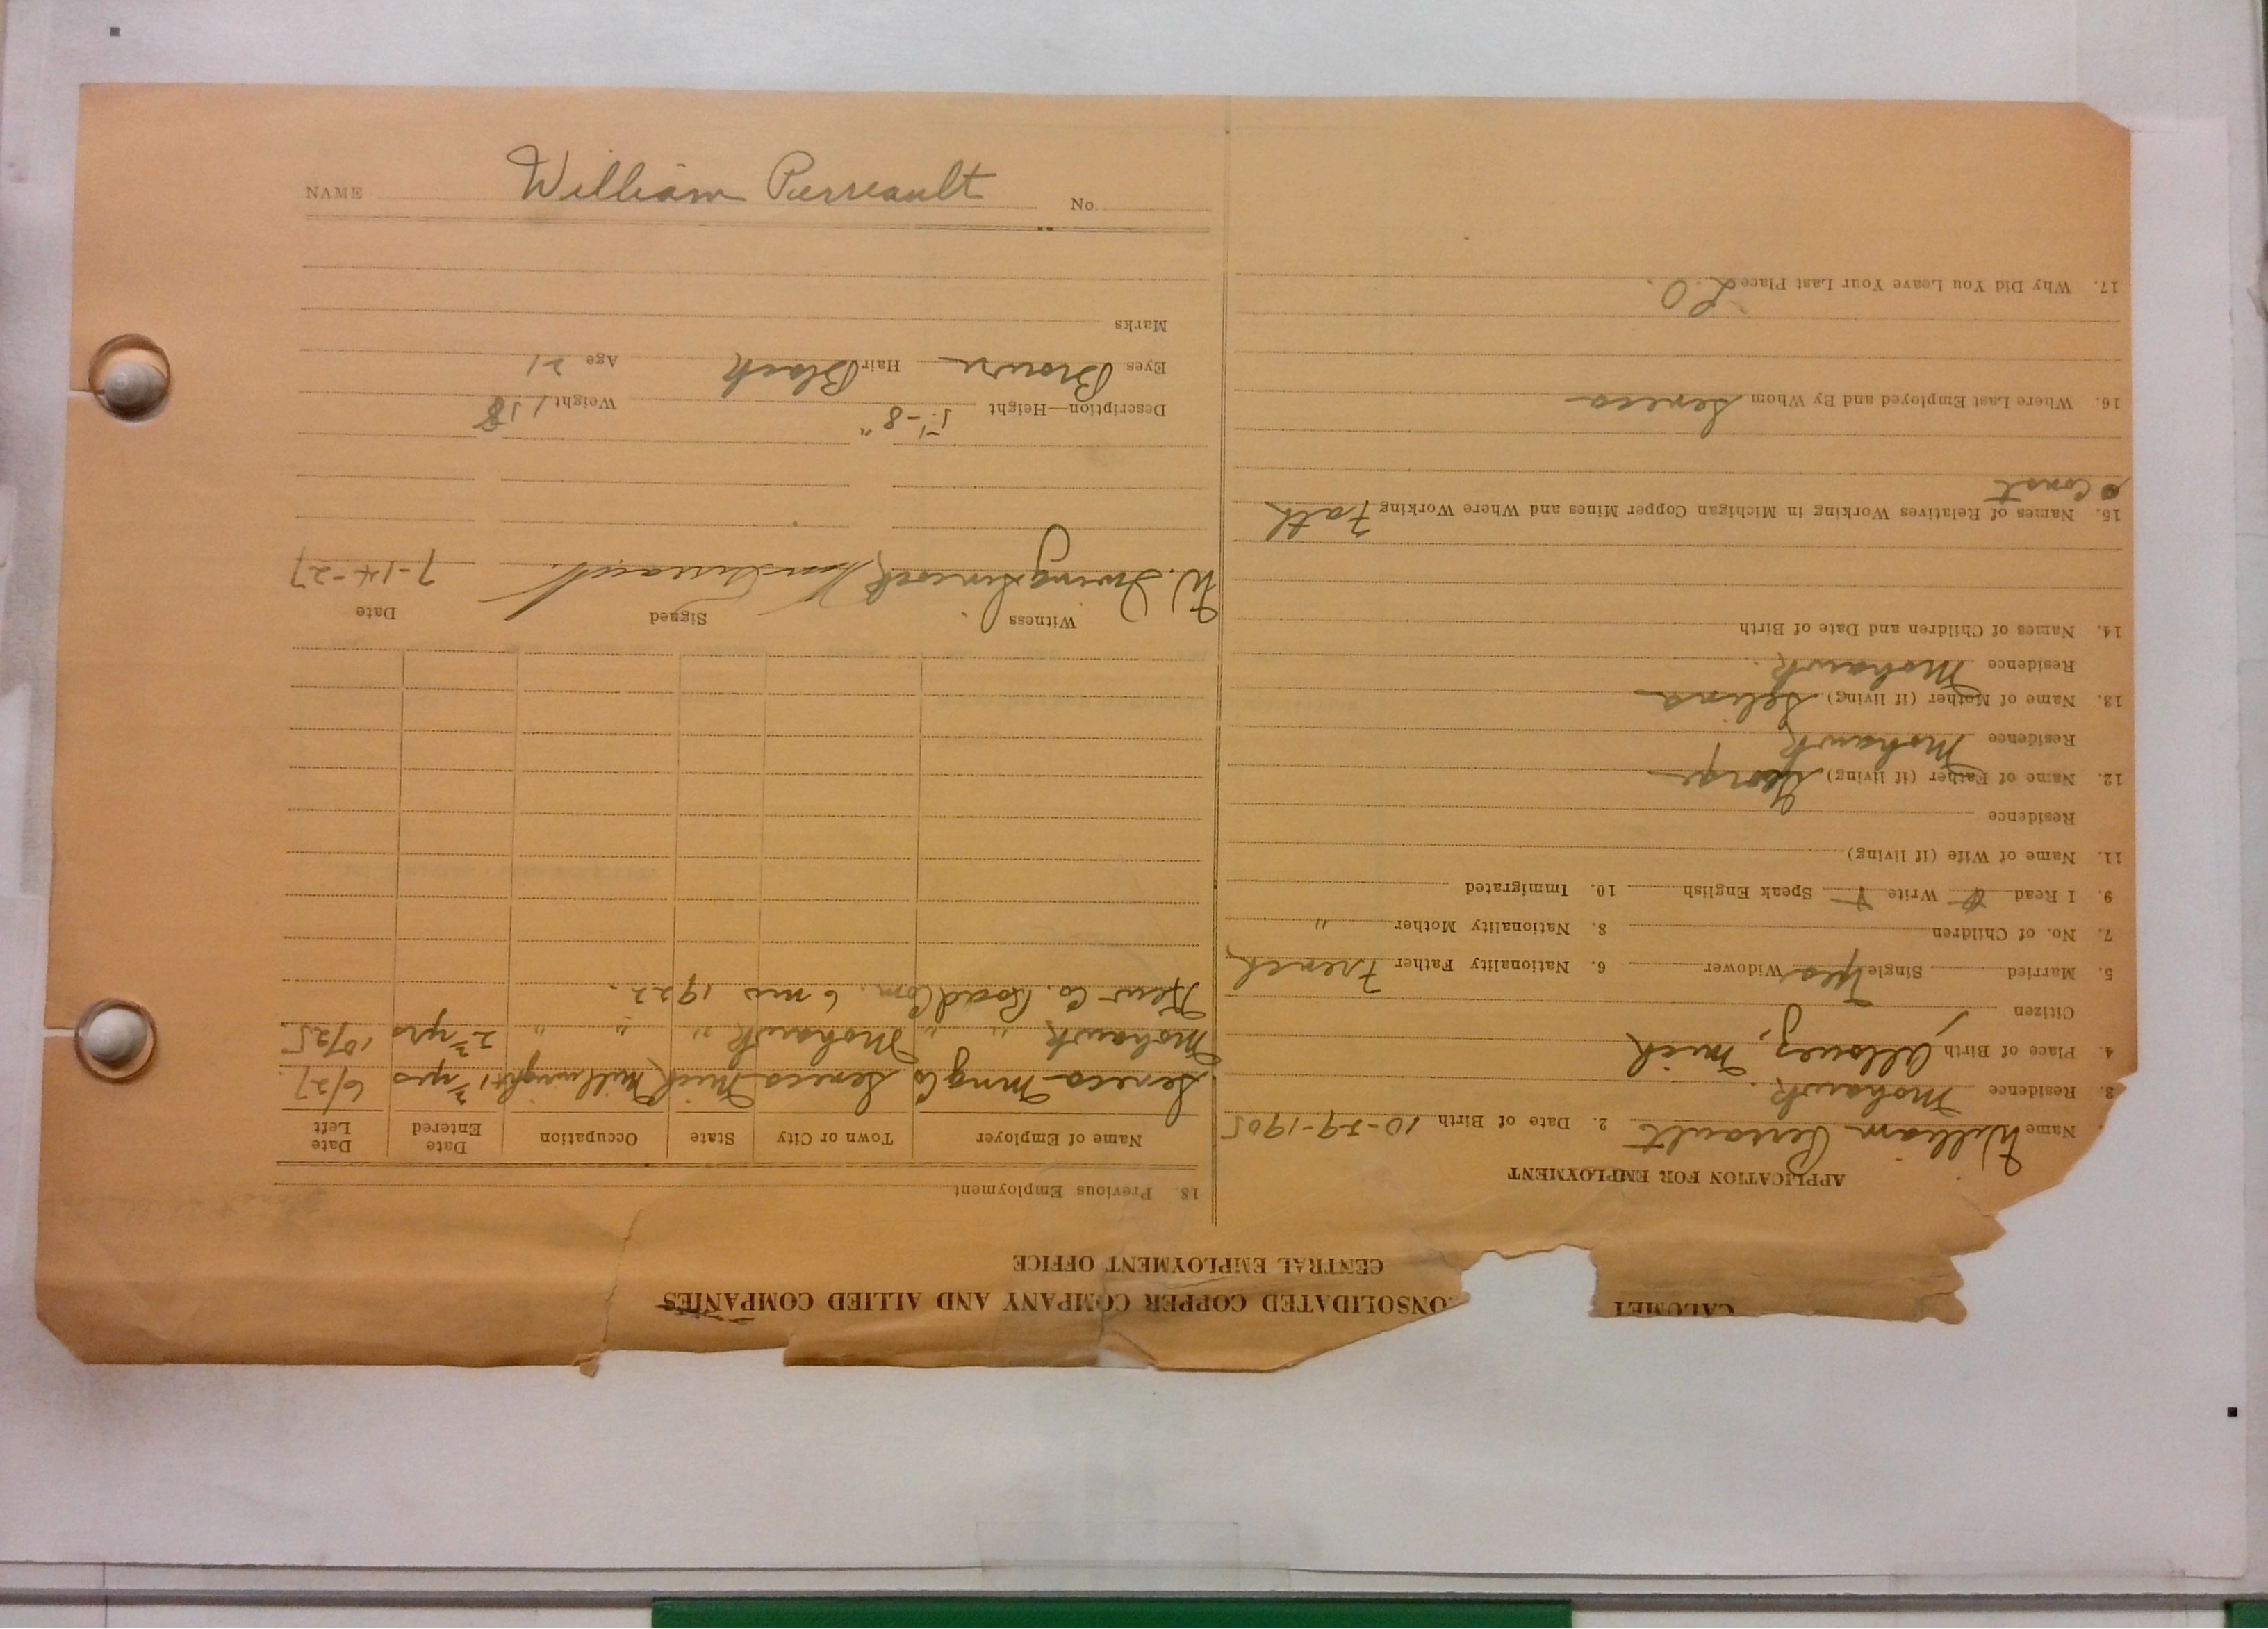 CALUMET ONSOLIDATED COPPER COMPANY AND ALLIED COMPANIES
CENTRAL EMPLOYMENT OFFICE
APPLICATION FOR EMPLOYMENT
Name William Perrault 2. Date of Birth 10-29-1905
3. Residence Mohawk.
4. Place of Birth Allouez, Mich
Citizen
5. Married Single Yes Widower 6. Nationality Father French
7. No. of Children 8. Nationality Mother "
9. I Read Write Speak English 10. Immigrated
11. Name of Wife (if living)
Residence
12. Name of Father (if living) George
Residence Mohawk
13. Name of Mother (if living) Selina
Residence Mohawk.
14. Names of Children and Date of Birth
15. Names of Relatives Working in Michigan Copper Mines and Where Working Fath
Const
16. Where Last Employed and By Whom Seneca
17. Why Did You Leave Your Last Place L.O.
18. Previous Employment
Name of Employer Town or City State Occupation Date Entered Date Left
Seneca Mng Co Seneca Mich Millwright 6/27
Mohawk " Mohawk " " " 10/25
Kew Co. Road Com. 6 mo 1922.
Witness Signed Date
W. Irving 7-14-27
Description—Height 5'-8" Weight 158
Eyes Brown Hair Black Age 21
Marks
NAME William Perreault No.